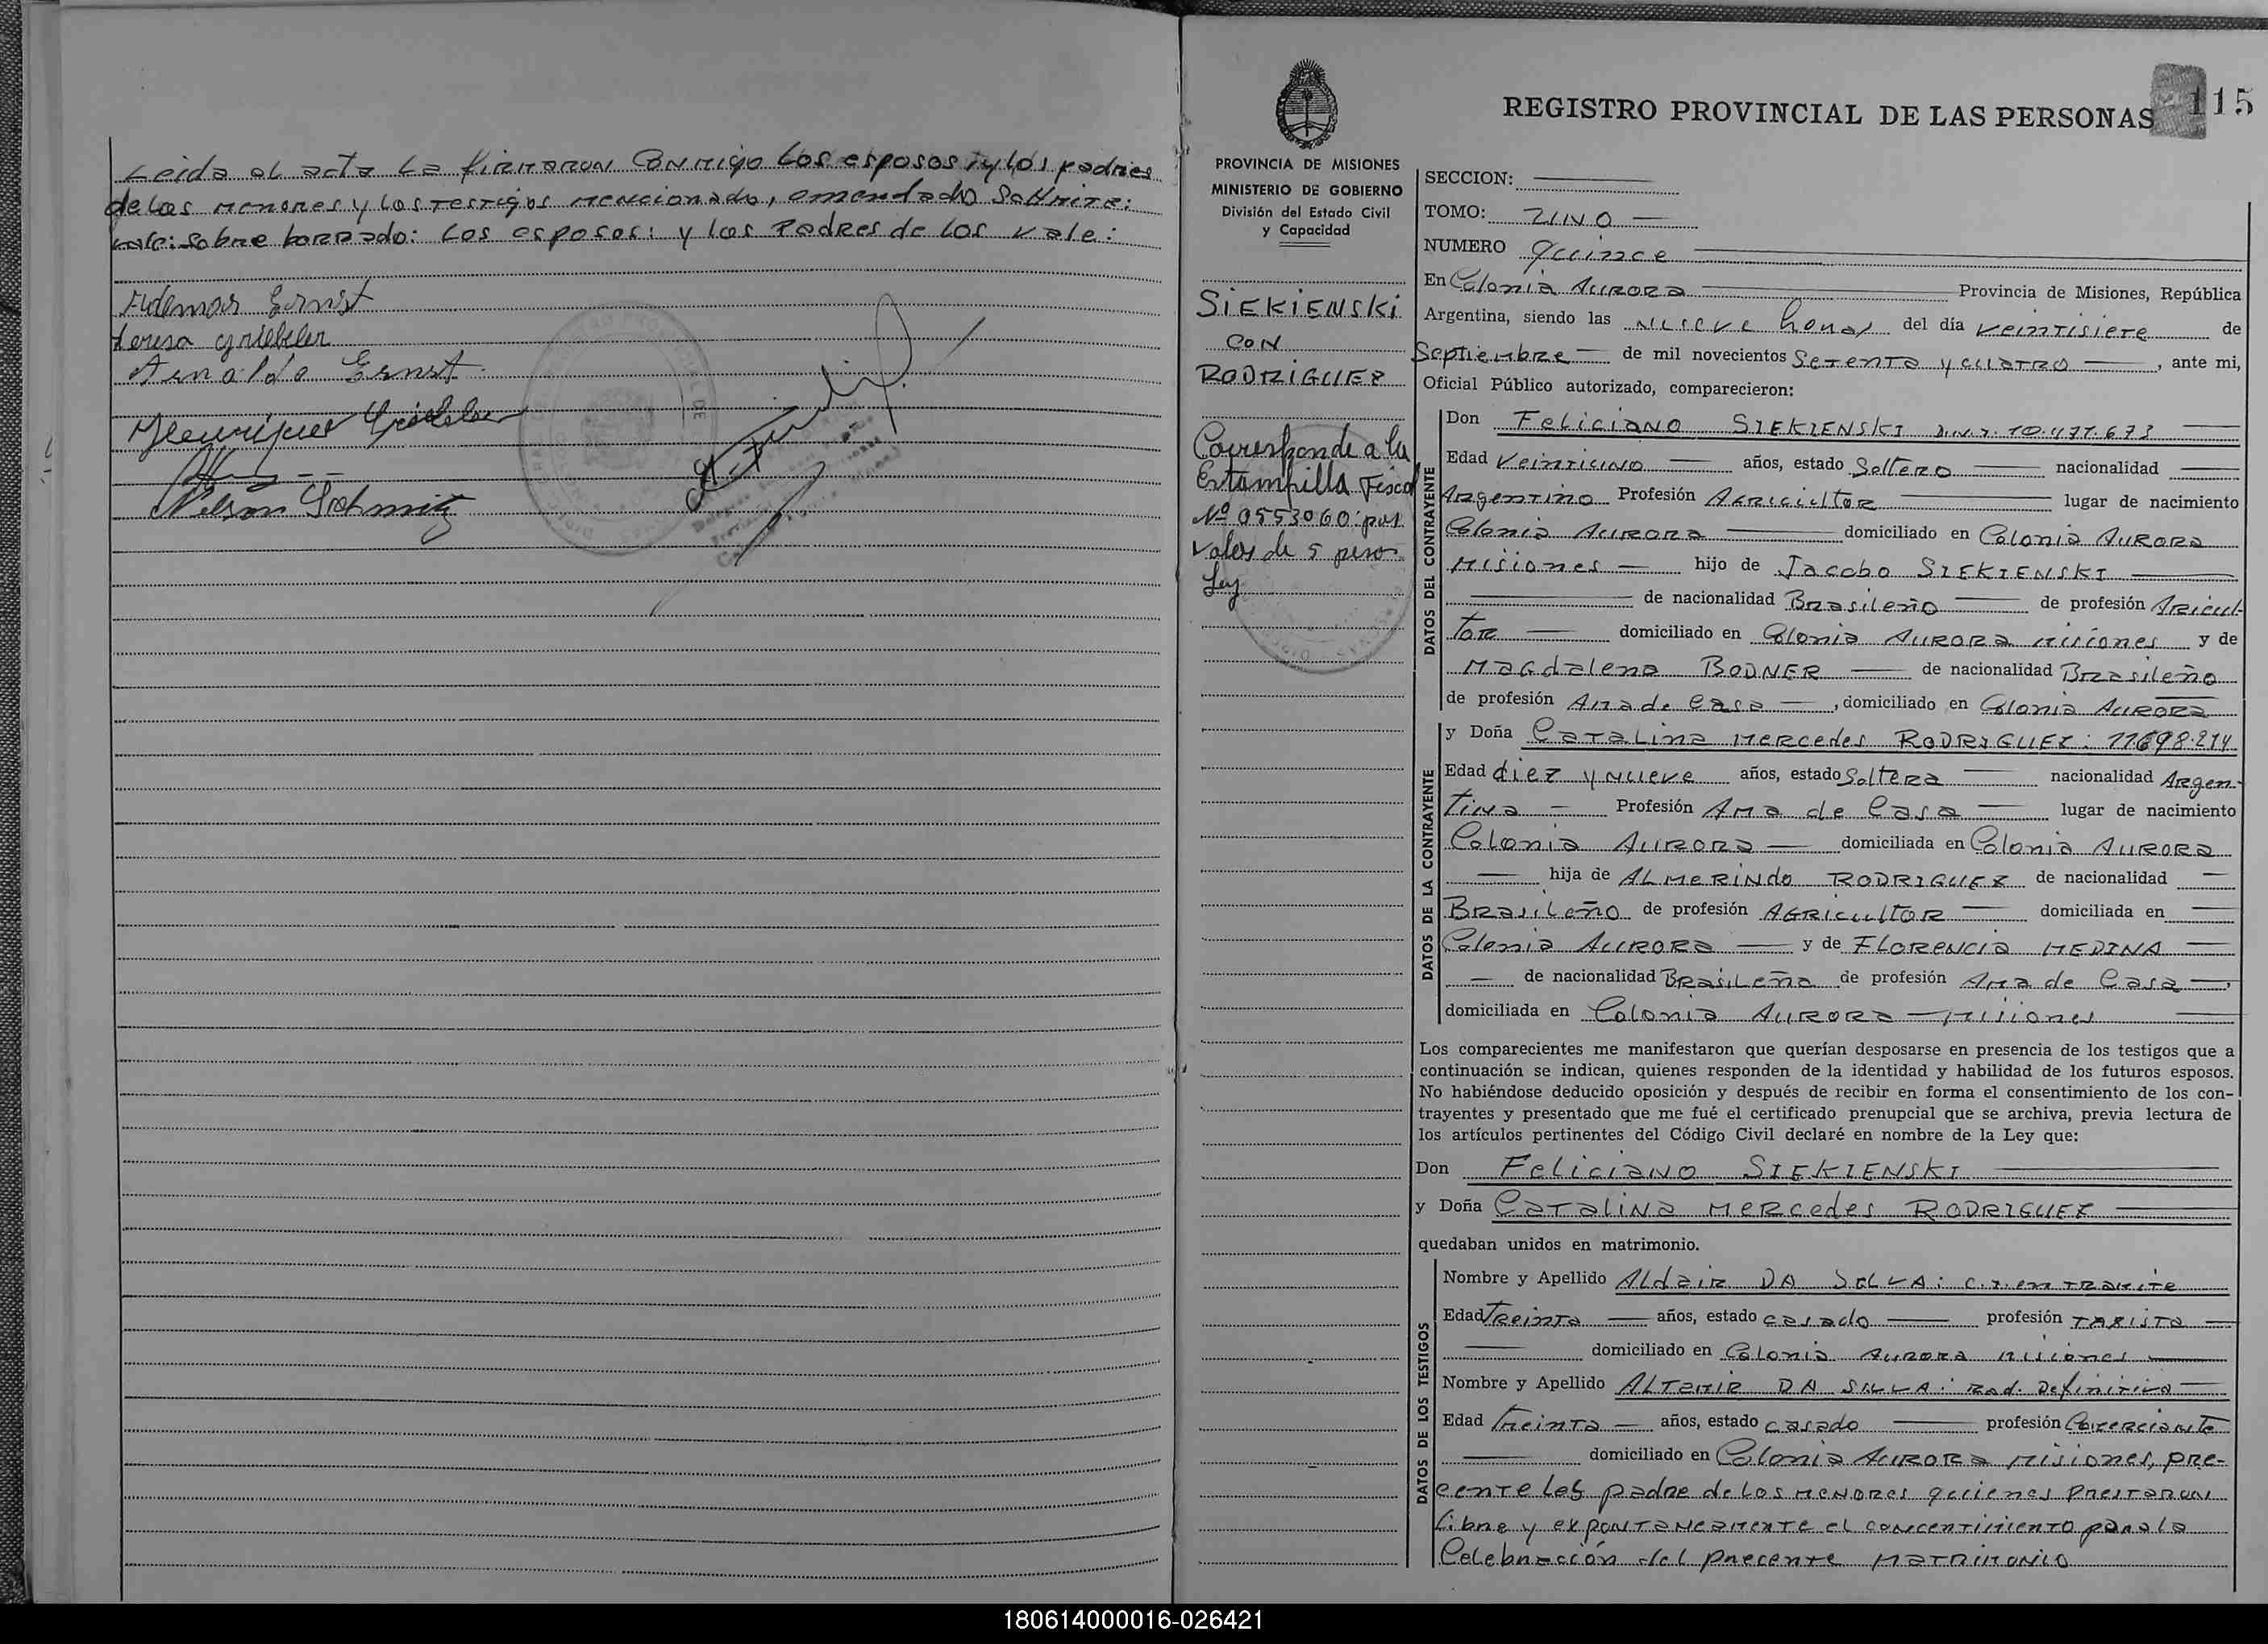 Leida el acta la firmaron conmigo los esposos, y los padries
de los menores y los testigos mencionado, emendado Schmitz:
vale: sobre borrado: los esposos: y los Padres de los vale:
Ademar Ernst
teresa griebeler
Arnaldo Ernst
Henrique Griebeler
Nelson Schmitz
PROVINCIA DE MISIONES
MINISTERIO DE GOBIERNO
División del Estado Civil
y Capacidad
SIEKIENSKI
CON
RODRIGUEZ
Corresponde a la
Estampilla Fiscal
Nº 0553060 por
Valor de 5 pesos
Ley
REGISTRO PROVINCIAL DE LAS PERSONAS 115
SECCION:
TOMO: UNO
NUMERO quince
En Colonia Aurora Provincia de Misiones, República
Argentina, siendo las nueve horas del día veintisiete de
Septiembre de mil novecientos Setenta y cuatro, ante mi,
Oficial Público autorizado, comparecieron:
DATOS DEL CONTRAYENTE
Don Feliciano SIEKIENSKI D.N.I. 10.477.673
Edad Veintiuno años, estado Soltero nacionalidad
Argentino Profesión Agricultor lugar de nacimiento
Colonia Aurora domiciliado en Colonia Aurora
Misiones hijo de Jacobo SIEKIENSKI
de nacionalidad Brasileño de profesión Aricul-
tor domiciliado en Colonia Aurora Misiones y de
Magdalena BODNER de nacionalidad Brasileño
de profesión Ama de Casa, domiciliado en Colonia Aurora
DATOS DE LA CONTRAYENTE
y Doña Catalina Mercedes RODRIGUEZ: 11698.214
Edad diez y nueve años, estado Soltera nacionalidad Argen-
tina Profesión Ama de Casa lugar de nacimiento
Colonia Aurora domiciliada en Colonia Aurora
hija de Almerindo RODRIGUEZ de nacionalidad
Brasileño de profesión Agricultor domiciliada en
Colonia Aurora y de Florencia MEDINA
de nacionalidad Brasileña de profesión Ama de Casa,
domiciliada en Colonia Aurora Misiones
Los comparecientes me manifestaron que querían desposarse en presencia de los testigos que a
continuación se indican, quienes responden de la identidad y habilidad de los futuros esposos.
No habiéndose deducido oposición y después de recibir en forma el consentimiento de los con-
trayentes y presentado que me fué el certificado prenupcial que se archiva, previa lectura de
los artículos pertinentes del Código Civil declaré en nombre de la Ley que:
Don Feliciano SIEKIENSKI
y Doña Catalina Mercedes RODRIGUEZ
quedaban unidos en matrimonio.
DATOS DE LOS TESTIGOS
Nombre y Apellido Aldair DA SILVA: C.I. en tramite
Edad Treinta años, estado casado profesión taxista
domiciliado en Colonia Aurora Misiones
Nombre y Apellido Altamir DA SILVA: Rad. Definitiva
Edad Treinta años, estado casado profesión Comerciante
domiciliado en Colonia Aurora Misiones, pre-
cente les padre de los menores quienes prestaron
libre y expontaneamente el concentimiento para la
Celebración del precente Matrimonio
180614000016-026421